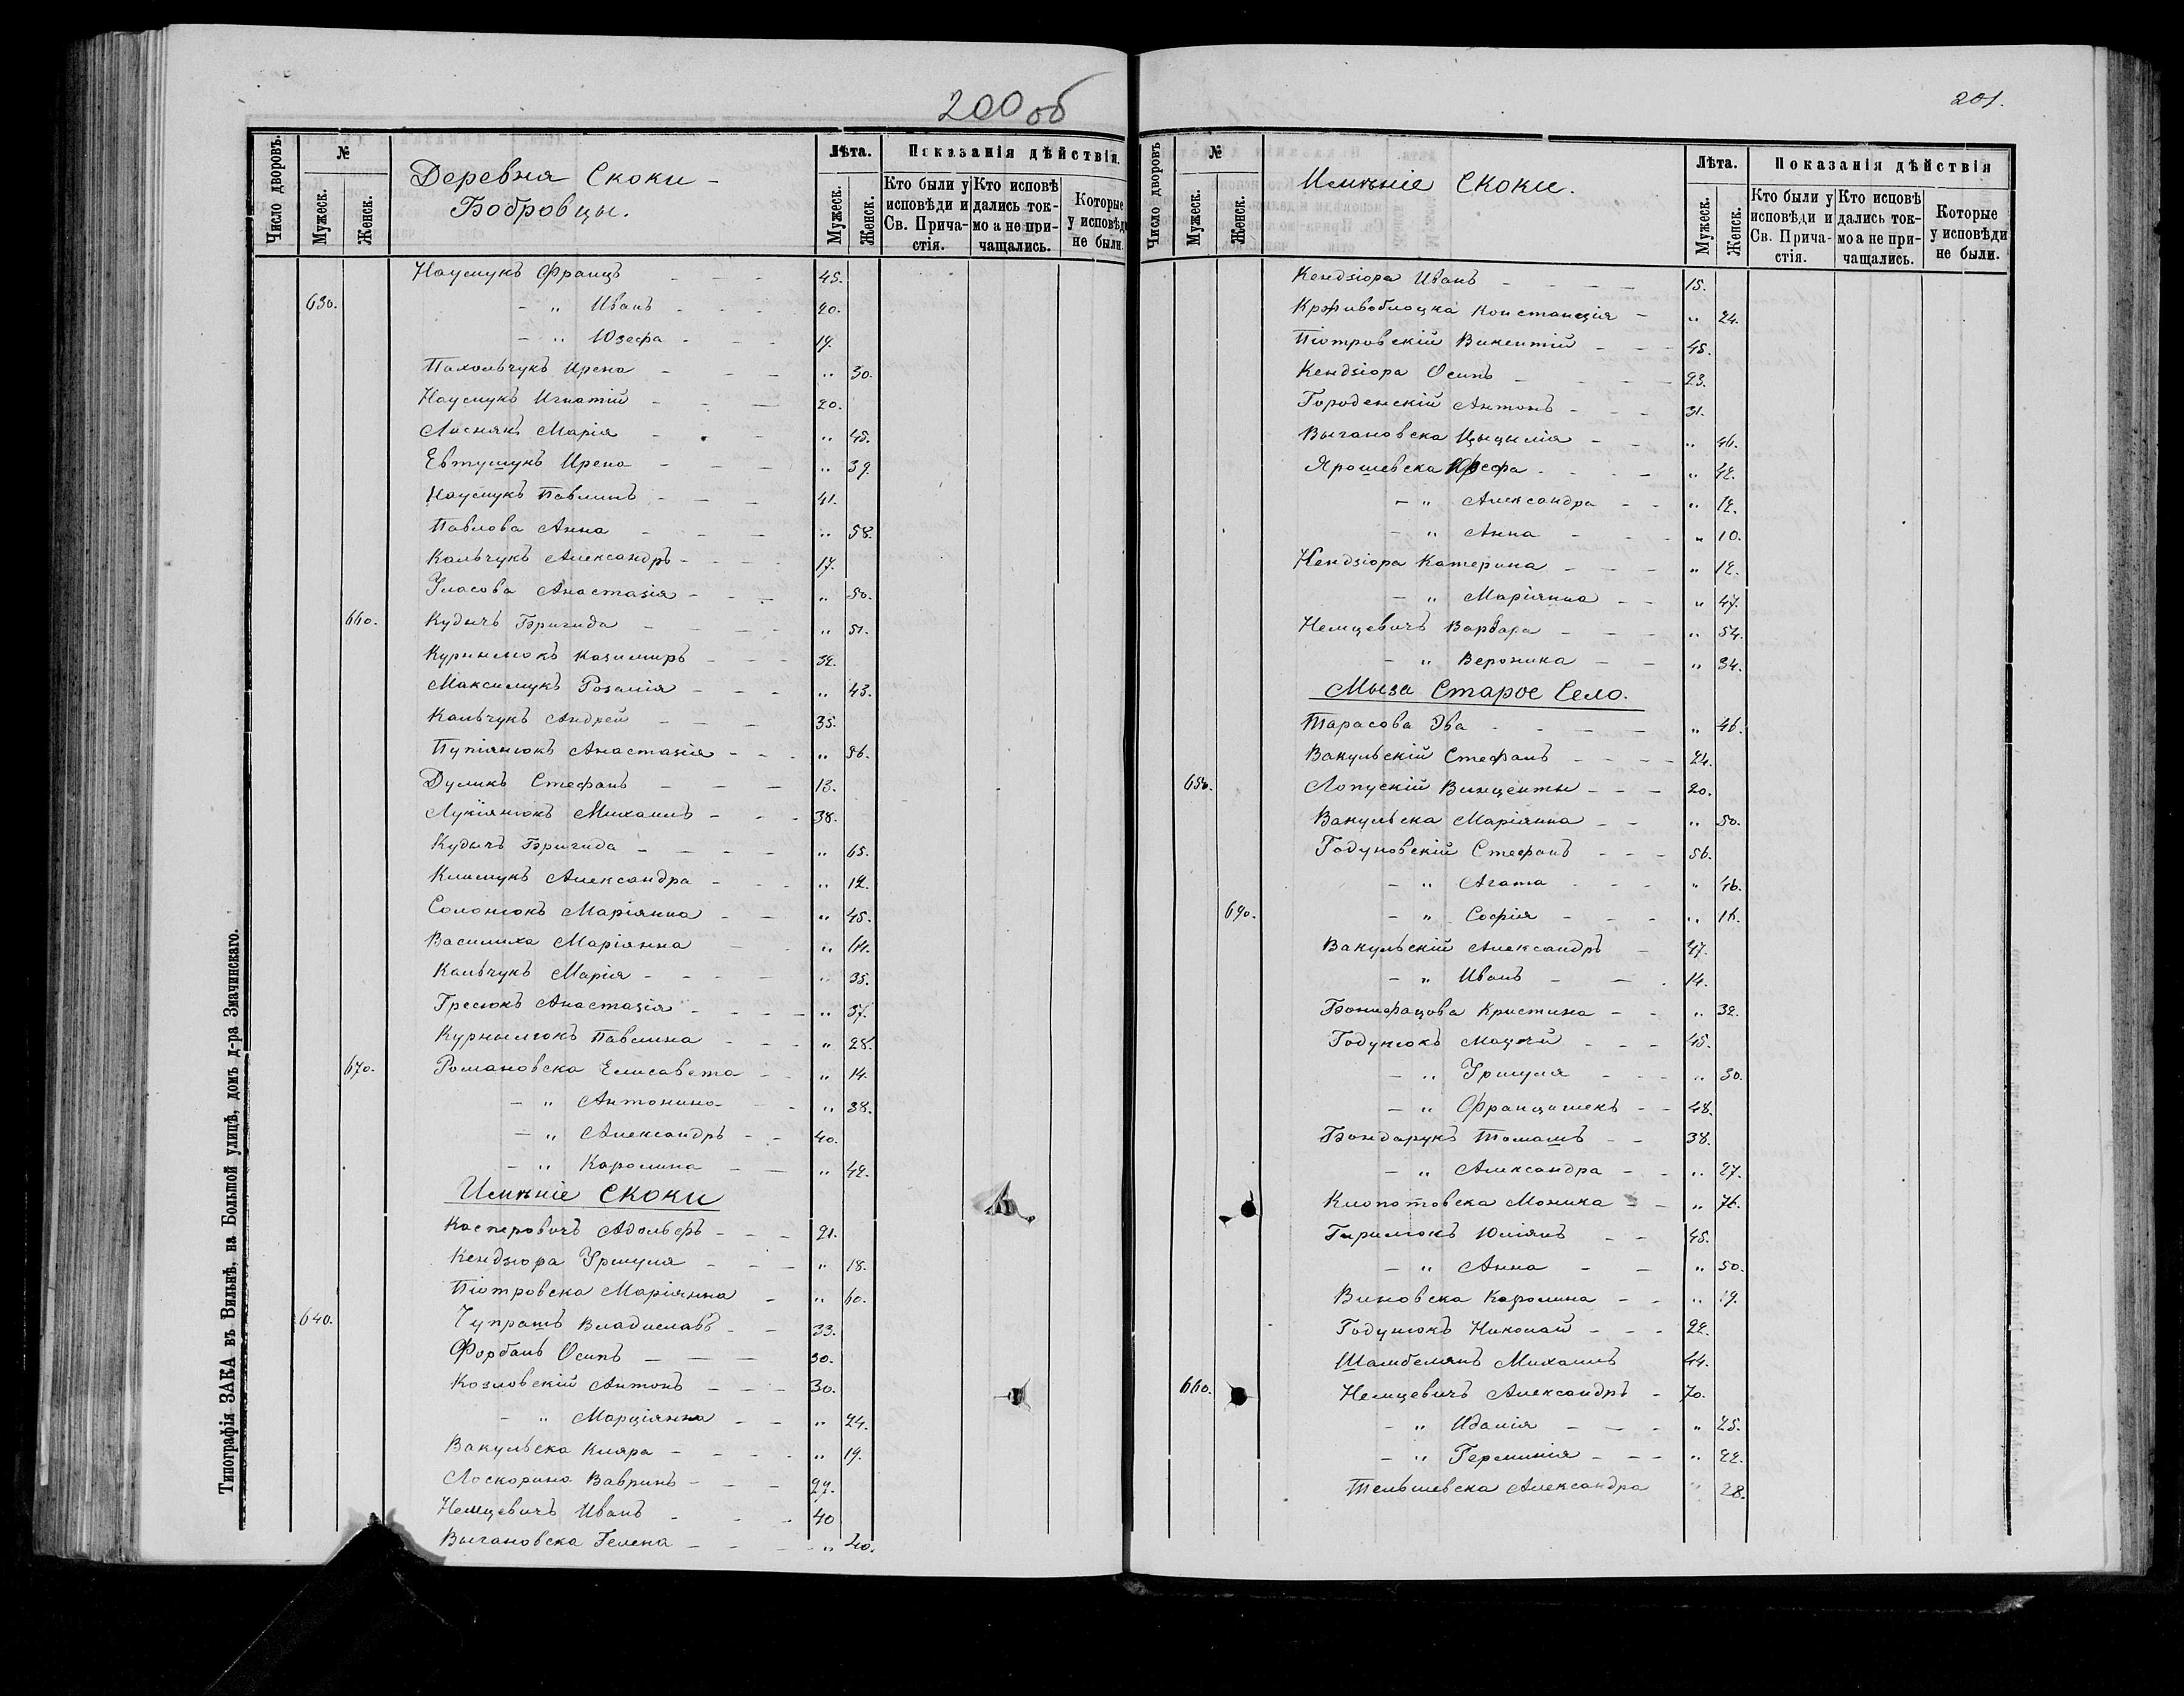 200 об
Число дворовъ.
№
Мужеск.
Женск.
Деревня Скоки -
Бобровцы.
Лѣта.
Мужеск.
Женск.
Показанія дѣйствія.
Кто были у исповѣди и Св. Причастія.
Кто исповѣдались токмо а не причащались.
Которые у исповѣди не были.
Наумукъ Францъ - - - 45.
630. - " Иванъ - - - 20.
- " Юзефа - - - 19.
Пахольчукъ Ирена - - - " 30.
Наумукъ Игнатій - - - 20.
Лиснякъ Марія - - - " 45.
Евтушукъ Ирена - - - " 39.
Наумукъ Павлинъ - - - 41.
Павлова Анна - - - " 58.
Кальчукъ Александръ - - - 17.
Уласова Анастазія - - - " 50.
660. Кудычъ Бригида - - - - " 51.
Курнылюкъ Казимиръ - - - 32.
Максимукъ Розалія - - - " 43.
Кальчукъ Андрей - - - 35.
Пупіянюкъ Анастазія - - - " 56.
Дуликъ Стефанъ - - - 13.
Лукіянюкъ Михаилъ - - - 38.
Кудычъ Бригида - - - - " 65.
Климукъ Александра - - - " 12.
Солонюкъ Маріянна - - " 45.
Василиха Маріянна - - " 64.
Кальчукъ Марія - - - - " 35.
Гресюкъ Анастазія - - - - " 37.
Курнылюкъ Павлина - - - " 28.
670. Романовска Елисавета - - " 14.
- " Антонина - - " 38.
- " Александръ - - 40.
- " Каролина - - " 42.
Имѣніе Скоки
Касперовичъ Адольфъ - - - 21.
Кендзюра Уршуля - - - " 18.
Піотровска Маріянна - " 60.
640. Чупрашъ Владиславъ - - 33.
Форбанъ Осипъ - - - 30.
Козловскій Антонъ - - - 30.
- " Марціянна - - " 24.
Вакульска Кляра - - - - " 19.
Лоскорина Вавринъ - - - 27.
Немцевичъ Иванъ - - - 40
Выгановска Гелена - - - - " 40.
Типографія ЗАКА въ Вильнѣ, на Большой улицѣ, домъ д-ра Змачинскаго.
201.
Число дворовъ
№
Мужеск.
Женск.
Имѣніе Скоки.
Лѣта.
Мужеск.
Женск.
Показанія дѣйствія
Кто были у исповѣди и Св. Причастія.
Кто исповѣдались токмо а не причащались.
Которые у исповѣди не были.
Кендзіора Иванъ - - - - 15.
Крживоблоцка Констанція - " 24.
Піотровскій Викентій - - - 45.
Кендзіора Осипъ - - - - 23.
Городенскій Антонъ - - - 31.
Выгановска Цыцылія - - " 46.
Ярошевска Юзефа - - - - " 42.
- " Александра - - " 12.
- " Анна - - - " 10.
Кендзіора Катерина - - - " 12.
- " Маріянна - - " 47.
Немцевичъ Варвара - - - " 54.
- " Вероника - - " 34.
Мыза Старое Село.
Тарасова Эва - - - - " 46.
Вакульскій Стефанъ - - - - 24.
650. Лопускій Винценты - - - 20.
Вакульска Маріянна - - " 50.
Годуновскій Стефанъ - - - 56.
- " Агата - - - " 46.
690. - " Софія - - - " 16.
Вакульскій Александръ - 47.
- " Иванъ - - . 14.
Бонифацова Кристина - - " 32.
Годунюкъ Мацѣй - - - 45.
- " Уршуля - - - " 30.
- " Францишекъ - - 48.
Бондарукъ Томашъ - - 38.
- " Александра - - " 27.
Клопотовска Моника - - " 76.
Гирилюкъ Юліянъ - - 45.
- " Анна - - " 50.
Виновска Каролина - - " 19.
Годунюкъ Николай - - - 22.
Шамбелянъ Михаилъ 44.
660. Немцевичъ Александръ - 70.
- " Идалія - - - " 25.
- " Герминія - - - " 22.
Тельшевска Александра " 28.